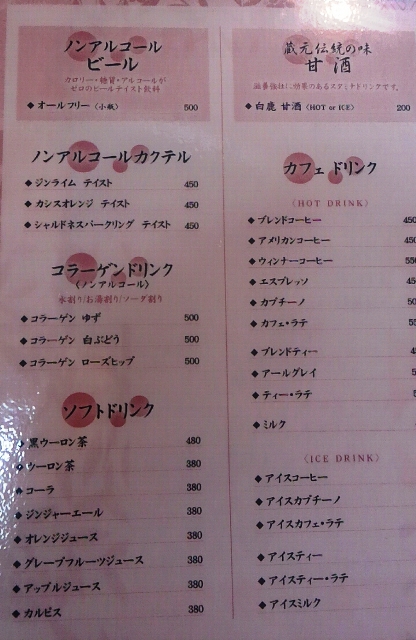 ノンアルコール
ビール
カロリー・糖質・アルコールが
ゼロのビールテイスト飲料
◆オールフリー〈小瓶〉 500
ノンアルコールカクテル
◆ジンライム テイスト 450
◆カシスオレンジ テイスト 450
◆シャルドネスパークリング テイスト 450
コラーゲンドリンク
(ノンアルコール)
水割り/お湯割り/ソーダ割り
◆コラーゲン ゆず 500
◆コラーゲン 白ぶどう 500
◆コラーゲン ローズヒップ 500
ソフトドリンク
◆黒ウーロン茶 480
◆ウーロン茶 380
◆コーラ 380
◆ジンジャーエール 380
◆オレンジジュース 380
◆グレープフルーツジュース 380
◆アップルジュース 380
◆カルピス 380
蔵元伝統の味
甘酒
滋養強壮に効果のあるスタミナドリンクです。
◆白鹿 甘酒〈HOT or ICE〉 200
カフェ ドリンク
〈HOT DRINK〉
◆ブレンドコーヒー 450
◆アメリカンコーヒー 450
◆ウィンナーコーヒー 550
◆エスプレッソ 45
◆カプチーノ 50
◆カフェ・ラテ 55
◆ブレンドティー 4
◆アールグレイ 5
◆ティー・ラテ 5
◆ミルク
〈ICE DRINK〉
◆アイスコーヒー
◆アイスカプチーノ
◆アイスカフェ・ラテ
◆アイスティー
◆アイスティー・ラテ
◆アイスミルク